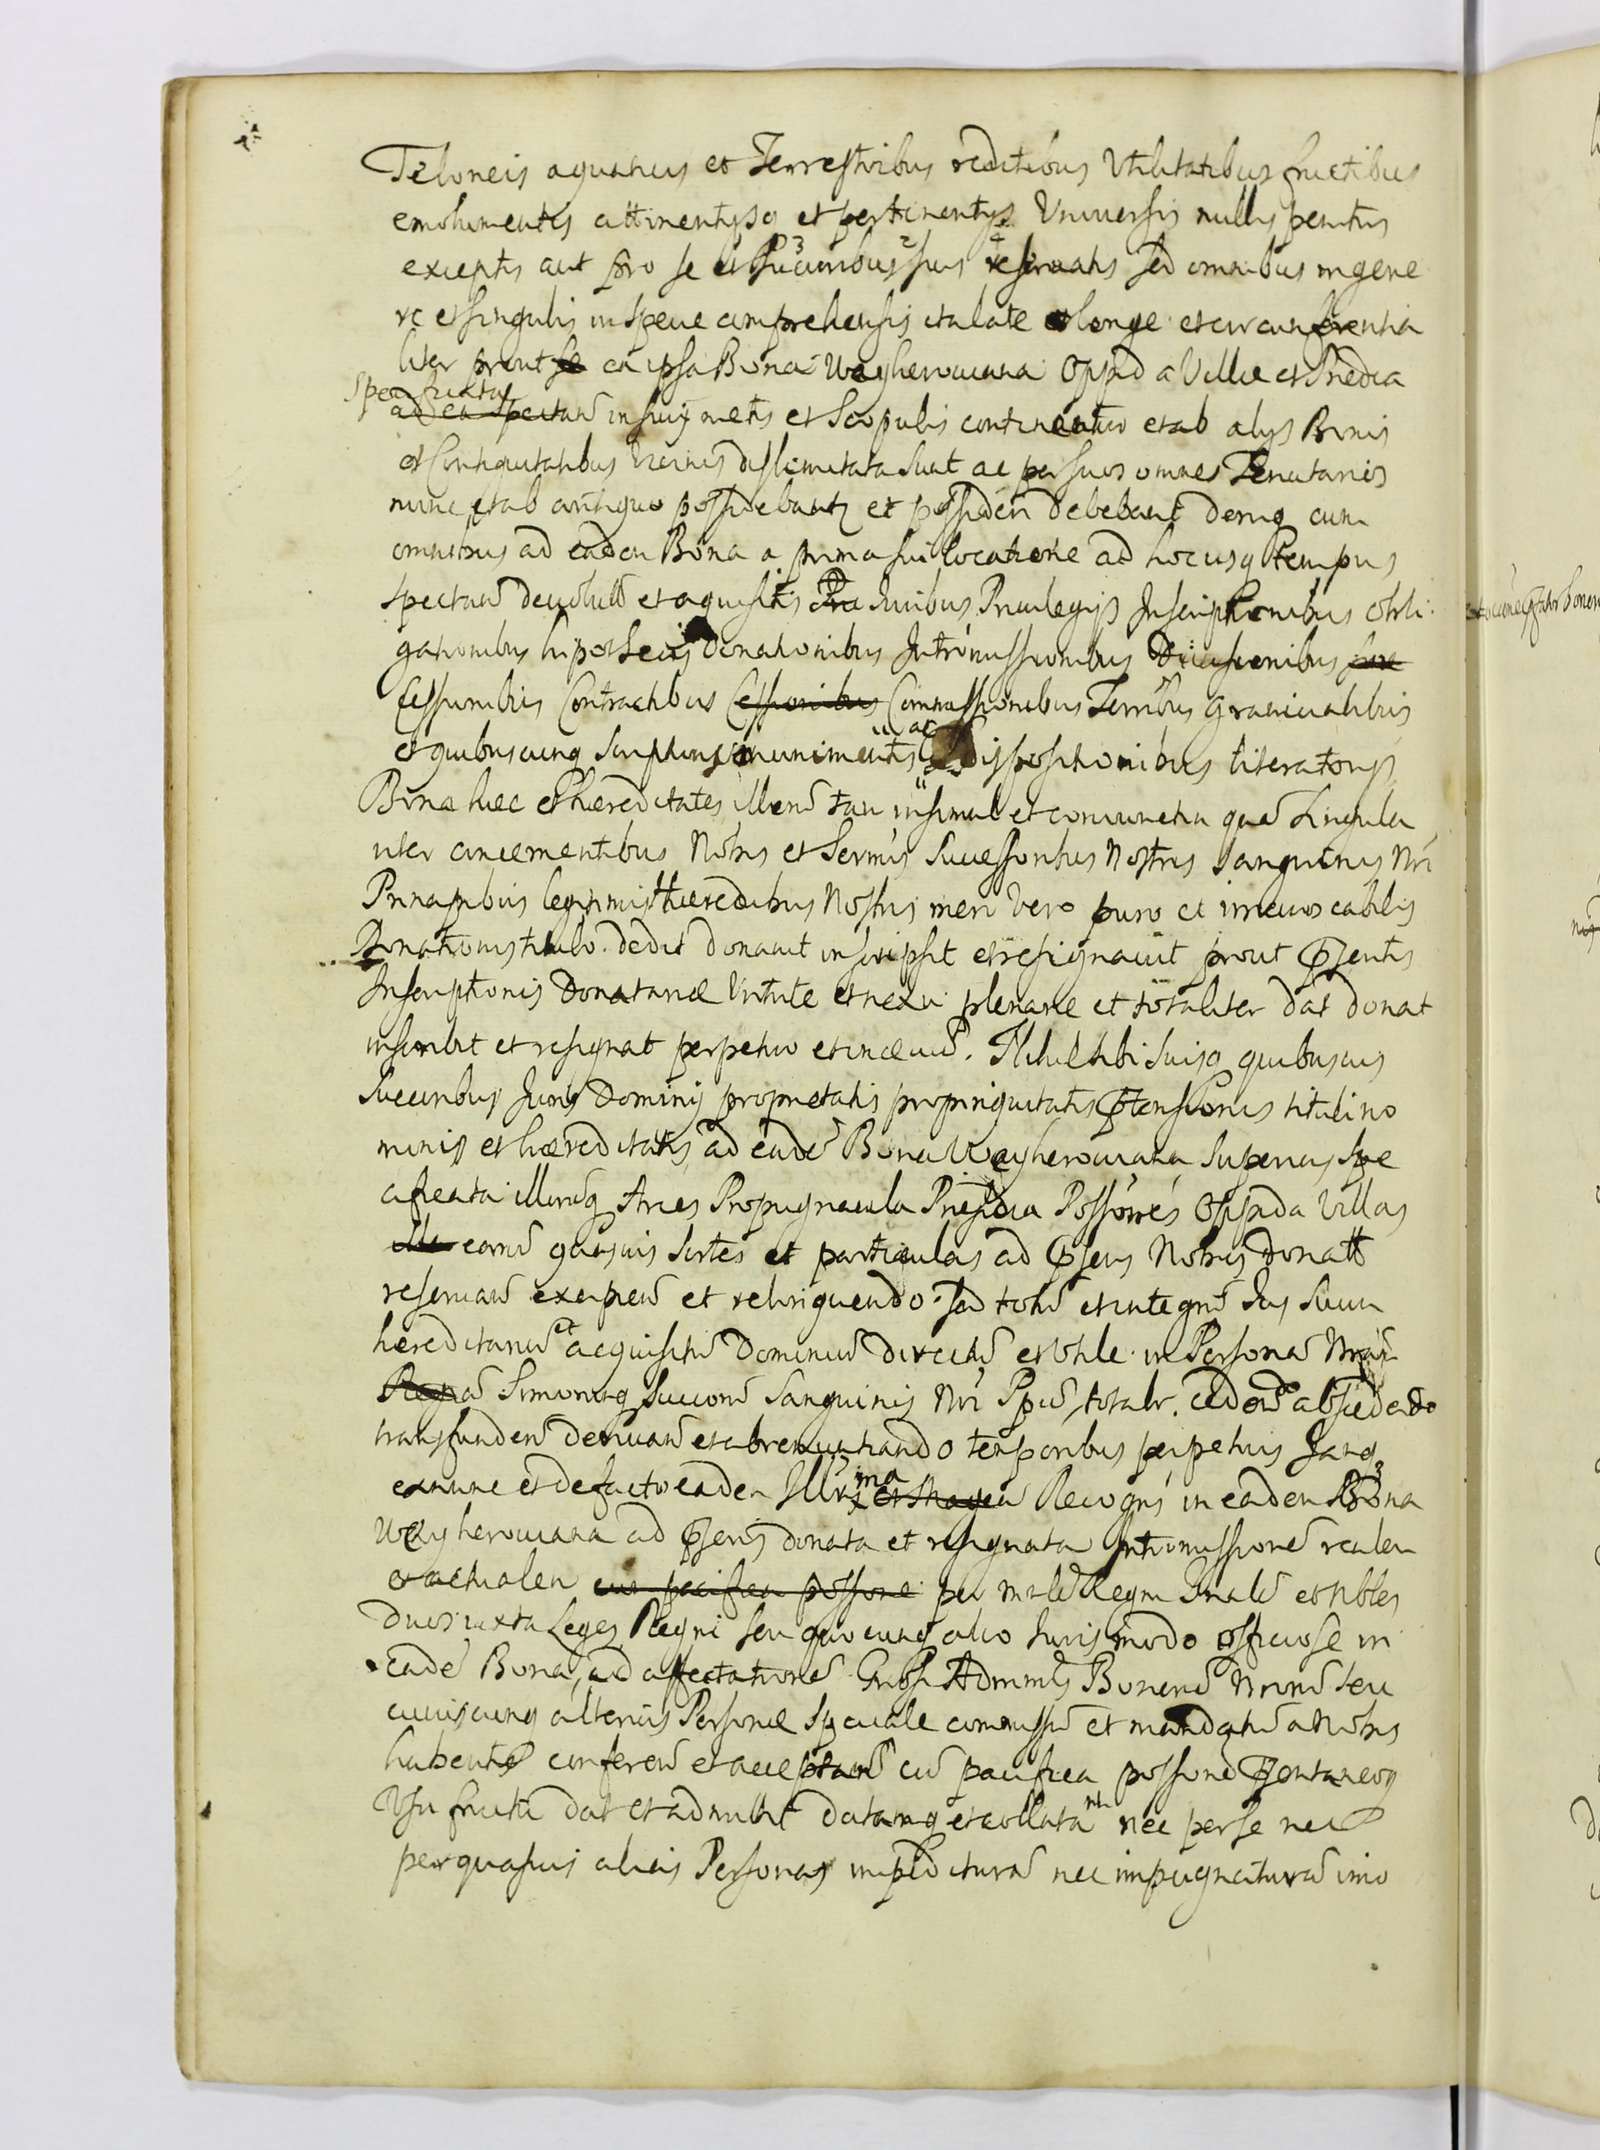 Teloneis aquaticis et Terrestribus reditibus Utilitatibus fructibus
emolumentis attinentysq et pertinentys Universis nullis penitus
exceptis aut pro se et Succoribus suis reservatis sed omnibus in gene
re et singulis in specie comprehensis ita late et longe et circumferentia
liter prout se ea ipsa Bona Weyherowiana Oppid a Villae et Praedia
Spec juxta
ad ea spectan in suis metis et Scopulis continentur et ab alys Bonis
et Contiguitatibus vicinis dislimitata sunt ac per suos omnes Tenutarios
nunc et ab antiquo possidebantr et possideri debebant deniq cum
omnibus ad eadem Bona a prima sui locatione ad hocusq tempus
spectan devolut et aquisitis Juribus Privilegijs Inscriptionibus obli
gationibus hipothecis donationibus Intromissionibus Decisionibus
Cessionibus Contractibus Cessionibus Commissionibus Terribus Granicialibus
et quibuscunq scripturis munimentis ac dispositionibus literatorys
Bona haec et haereditates illen tam insimul et conjunctim qua singula
riter concernentibus Nobis et Sermis Successoribus Nostris Sanguinis Nri
Principibus legitimis haeredibus Nostris meri vero puro et irrevocabilis
Donationis titulo dedit donavit inscripsit et resignavit prout Psentis
Inscriptionis Donatariae Virtute et nexu plenarie et totaliter dat donat
inscribit et resignat perpetuo et in aevu. Nihil sibi suisq quibusvis
Succoribus Juris Dominij proprietatis propinquitatis Ptensionis tituli no
minis et haereditatis ad eade Bona Weyherowiana superius spe
cificata illorumq Arces Propugnacula Praesidia Possones Oppida Villas
earum quasvis sortes et particulas ad Psens Nobis donatt
reservan excipien et relinquendo sed totu et integru Jus Suum
hereditariu et acquisitu Dominiu directu et utile in Persona Nrae
Simorumq Succorum Sanguinis Nri Ppu totalr ceden abscedendo
transfunden derivan et abrenuntiando temporibus perpetuis Jamq
ex nunc et de facto eadem Illrma et Magca Recogns in eadem Bona
Weyherowiana ad Psens donata et resignata Intromissione realem
et actualem cum pacifica possone per Mrle Regni Gnale et Nobles
duos juxta Leges Regni seu quocunq alio Juris modo officiose in
eade Bona ad affectatione Gnosi Admnis Bonoru Nroru seu
cujuscunq alterius Personae speciale commissu et mandatu a Nobis
habentis conferen et acceptan cu pacifica possione Psentaneoq
Usu fructu dat et admittit datamq et collata nec per se nec
per quasvis alias Personas impeditura nec impugnatura imo